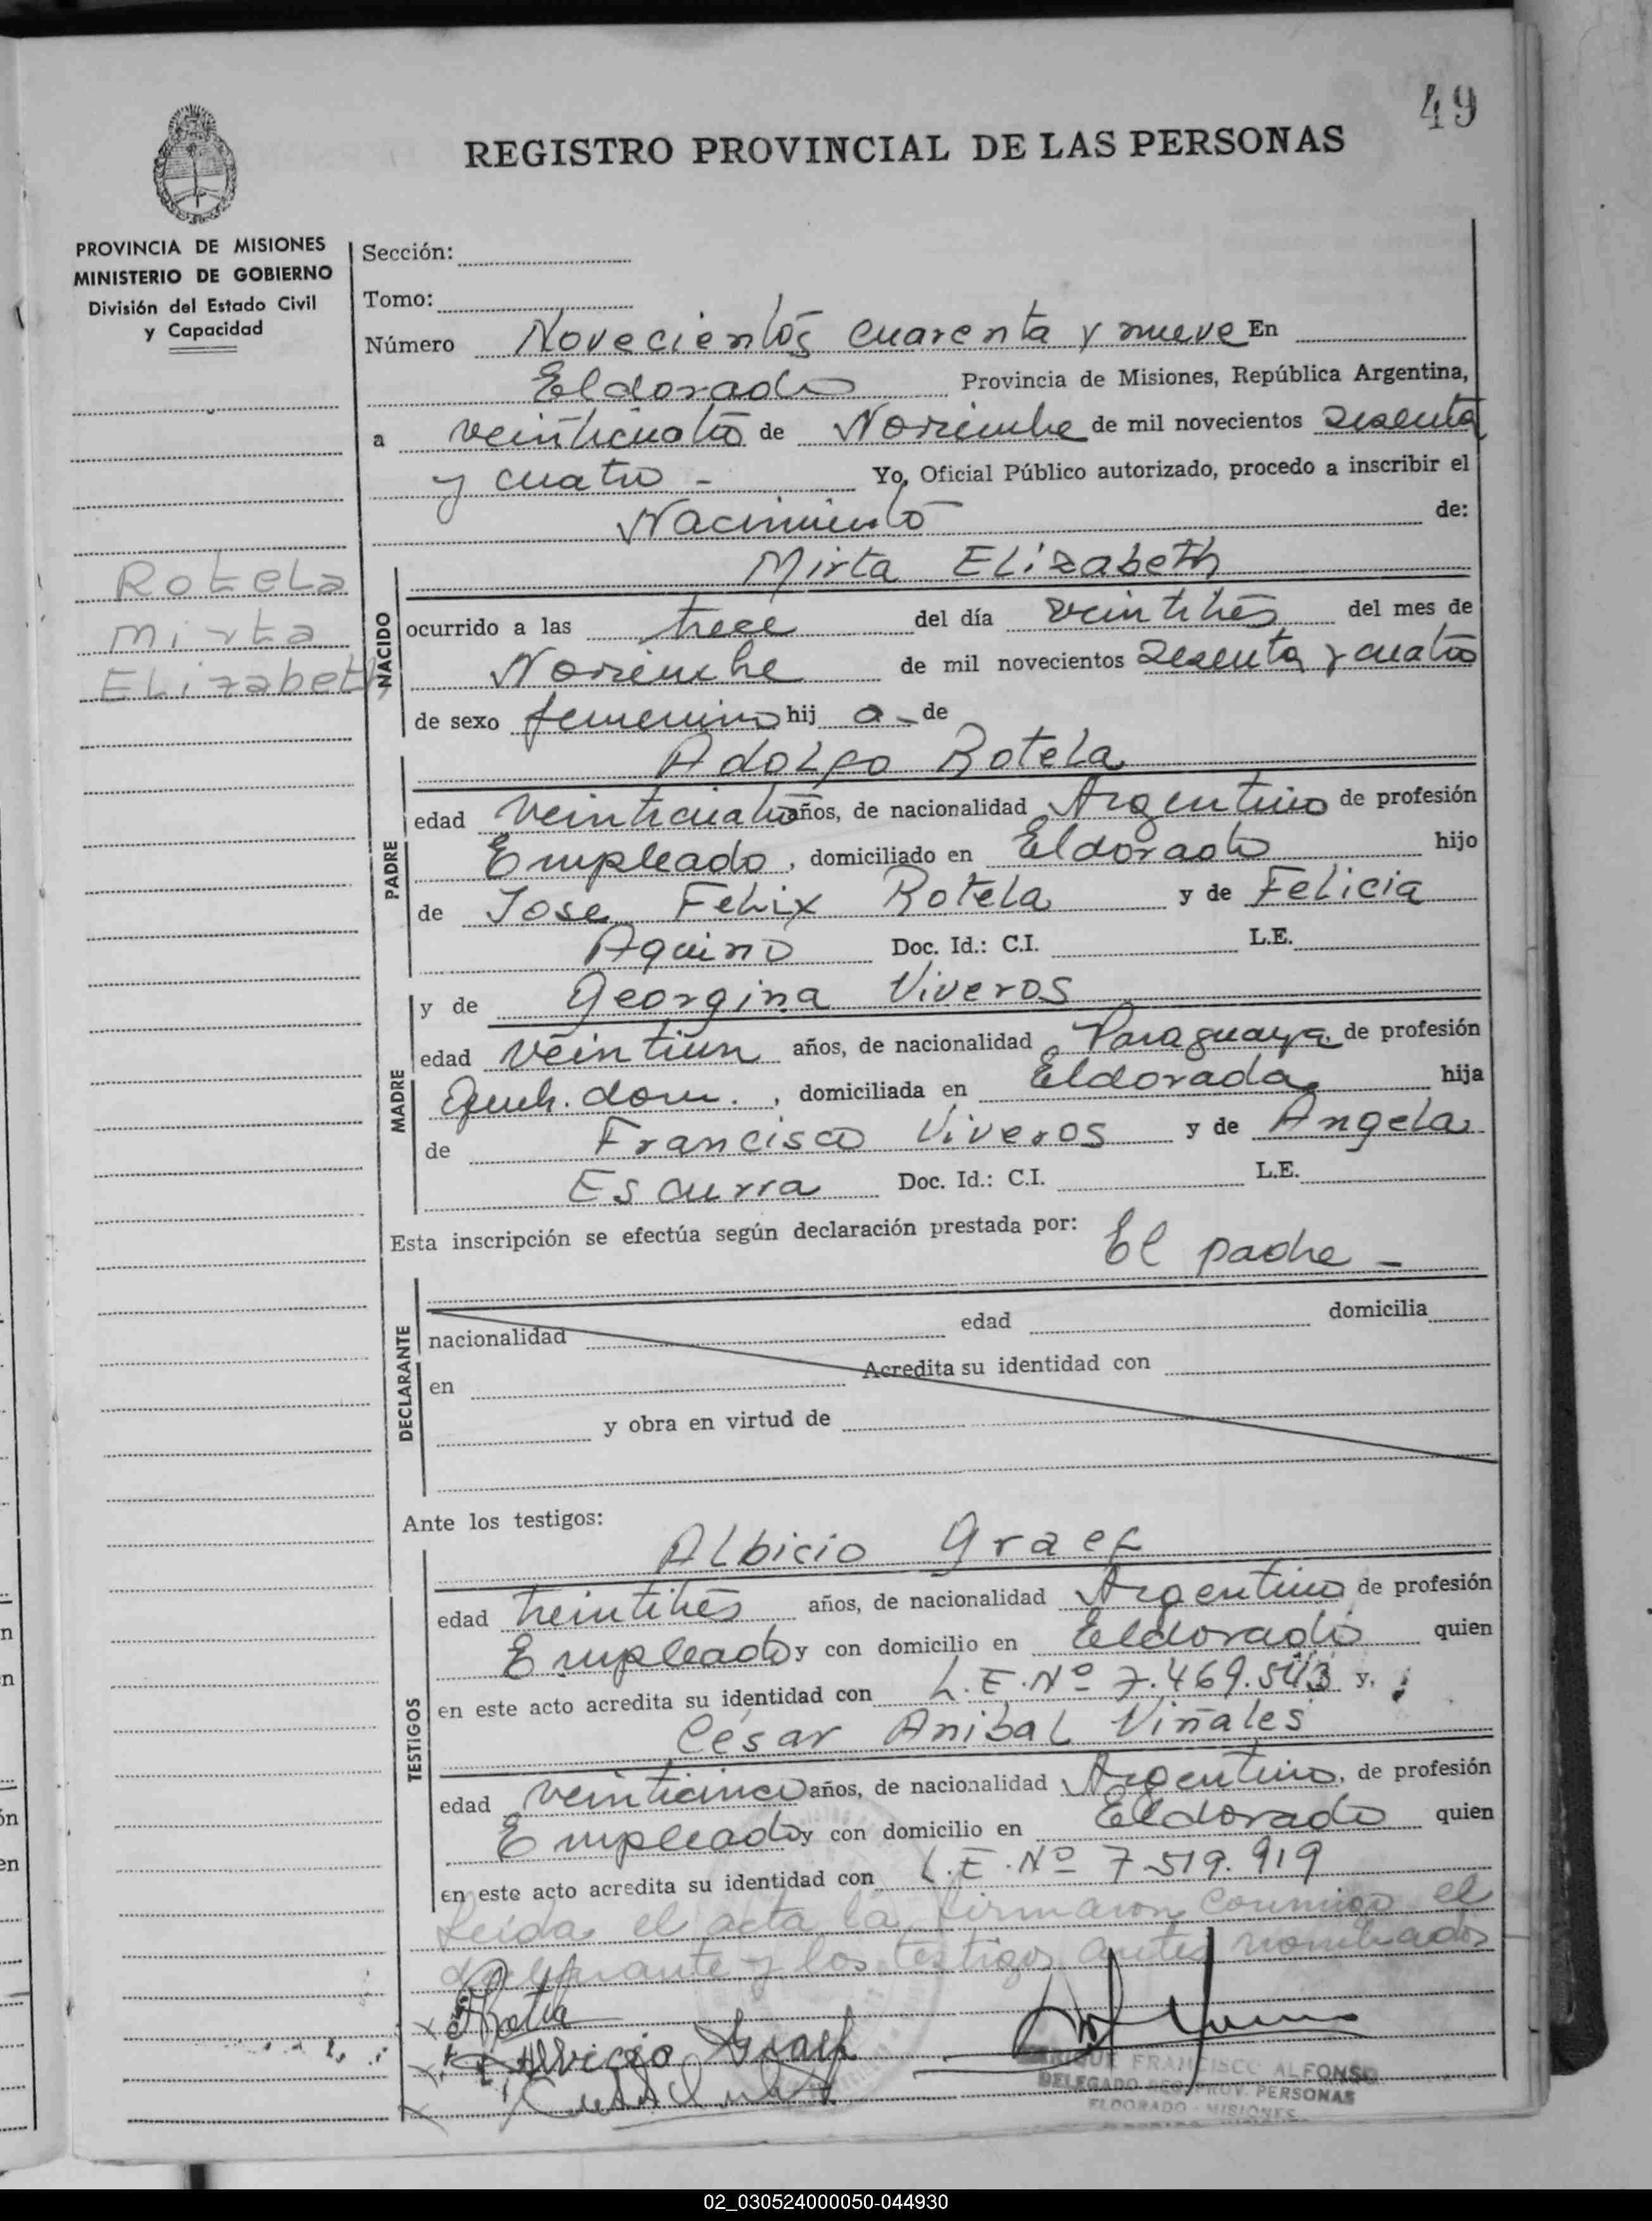 49
REGISTRO PROVINCIAL DE LAS PERSONAS
PROVINCIA DE MISIONES
MINISTERIO DE GOBIERNO
División del Estado Civil
y Capacidad
Rotela
Mirta
ELizabeth
Sección:
Tomo:
Número Novecientos cuarenta y nueve En
Eldorado Provincia de Misiones, República Argentina,
a veinticuatro de Noviembre de mil novecientos sesenta
y cuatro - Yo, Oficial Público autorizado, procedo a inscribir el
Nacimiento de:
NACIDO
Mirta ELizabeth
ocurrido a las trece del día veintitrés del mes de
Noviembre de mil novecientos sesenta y cuatro
de sexo femenino hij a - de
PADRE
AdoLfo RoteLa
edad veinticuatro años, de nacionalidad Argentino de profesión
Empleado, domiciliado en Eldorado hijo
de Jose Felix Rotela y de Felicia
Aquino Doc. Id.: C.I. L.E.
MADRE
y de Georgina Viveros
edad veintiun años, de nacionalidad Paraguaya de profesión
Queh. dom. , domiciliada en Eldorado hija
de Francisco Viveros y de Angela
Escurra Doc. Id.: C.I. L.E.
Esta inscripción se efectúa según declaración prestada por: El padre -
DECLARANTE
nacionalidad edad domicilia
en Acredita su identidad con
y obra en virtud de
Ante los testigos:
TESTIGOS
ALbicio Graef
edad treintitrés años, de nacionalidad Argentino de profesión
Empleado y con domicilio en Eldorado quien
en este acto acredita su identidad con L.E.Nº 7.469.543 y,
César AnibaL Viñales
edad veinticinco años, de nacionalidad Argentino, de profesión
Empleado y con domicilio en Eldorado quien
en este acto acredita su identidad con L.E.Nº 7.519.919
Leida el acta la firmaron conmigo el
declarante y los testigos antes nombrados
Albicio Graef
ENRIQUE FRANCISCO ALFONSO
DELEGADO REG. PROV. PERSONAS
ELDORADO - MISIONES
02_030524000050-044930